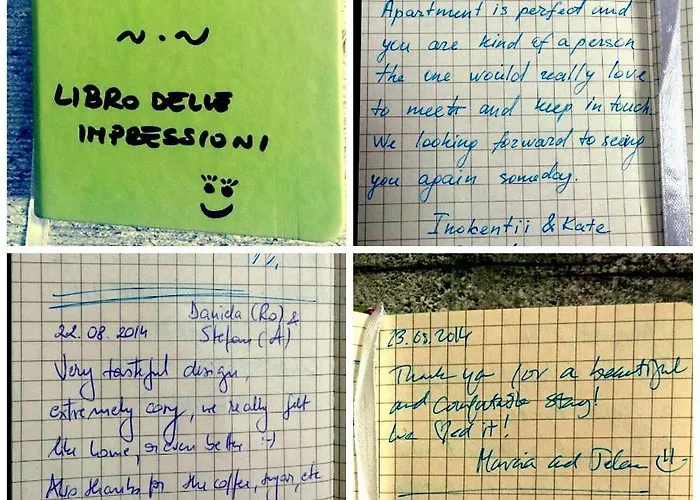 ~ . ~
LIBRO DELLE
IMPRESSIONI
Apartment is perfect and
you are kind of a person
the one would really love
to meet and keep in touch.
We looking forward to seeing
you again someday.
Inokentii & Kate
Daniela (Ro) &
22.08.2014 Stefan (A)
Very tasteful design,
extremely cosy, we really felt
like home, or even better :-)
Also thanks for the coffee, sugar, etc
23.08.2014
Thank you for a beautiful
and comfortable stay!
We ♡ed it!
Marcia and